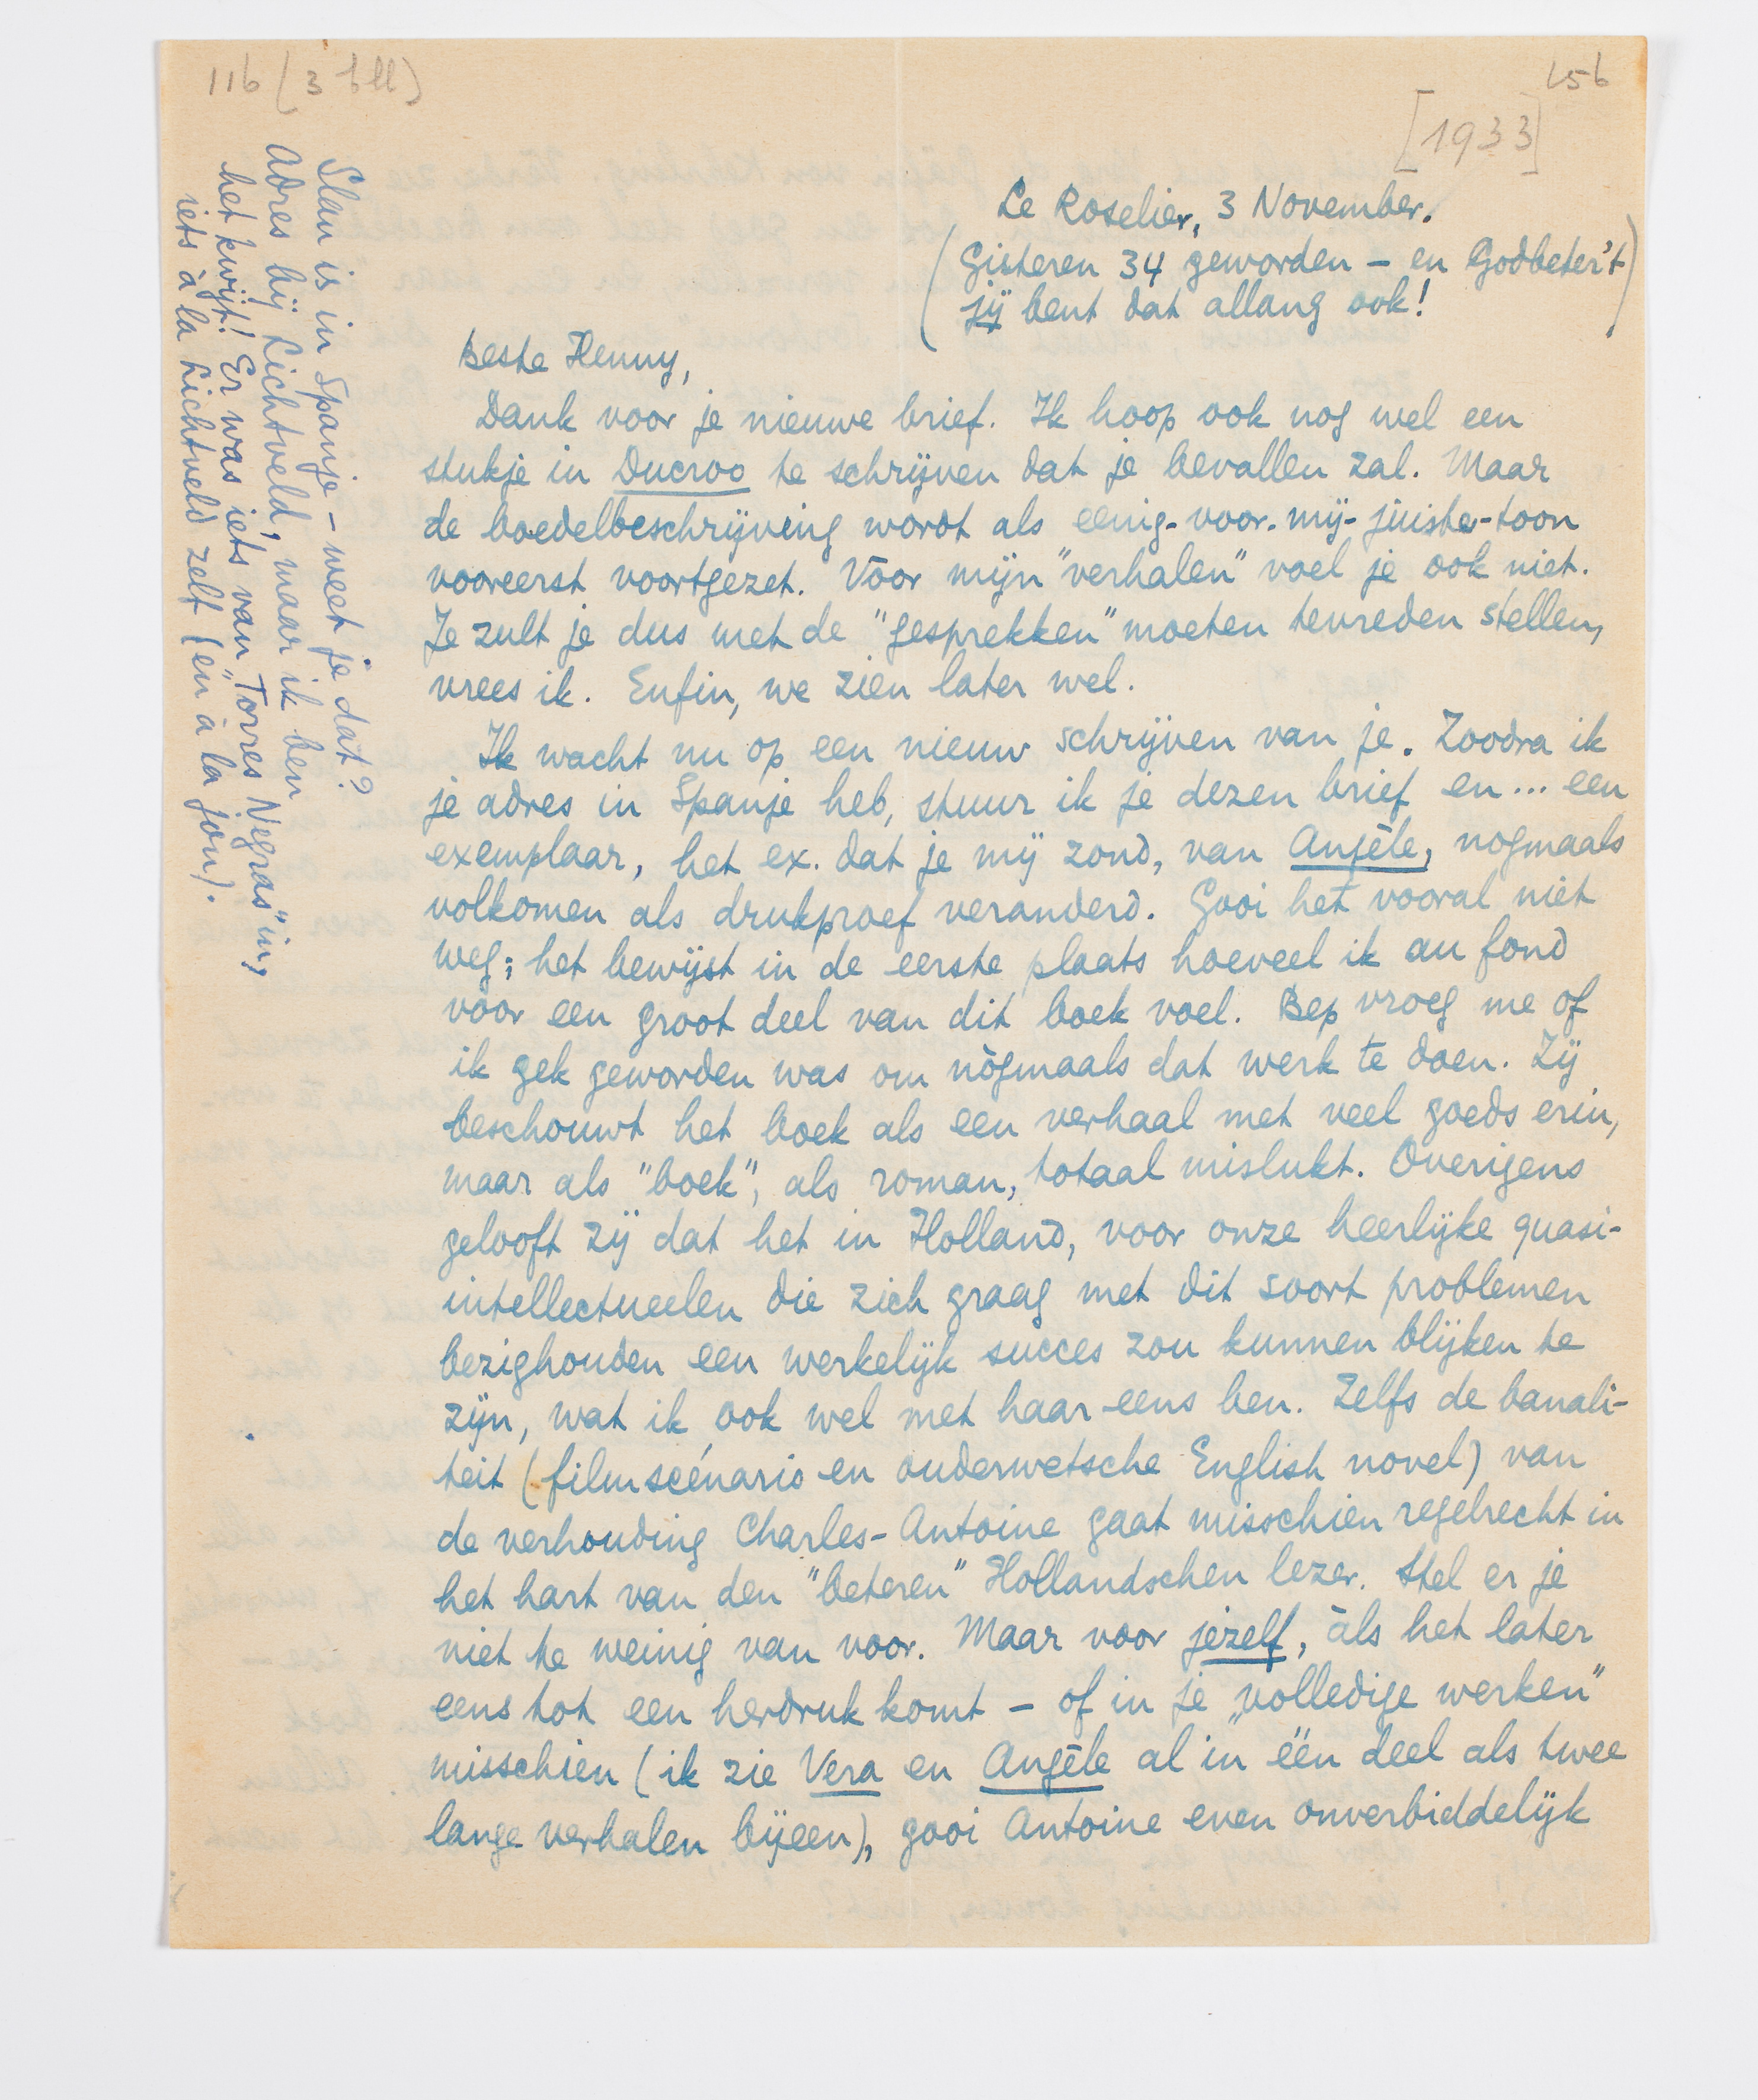 116 (3 bll)
156
[1933]
Le Roselier, 3 November.
(Gisteren 34 geworden – en Godbeter't
jij bent dat allang ook!)
Beste Henny,
Dank voor je nieuwe brief. Ik hoop ook nog wel een
stukje in Ducroo te schrijven dat je bevallen zal. Maar
de boedelbeschrijving wordt als eenig-voor-mij-juiste-toon
vooreerst voortgezet. Vóor mijn "verhalen" voel je ook niet.
Je zult je dus met de "gesprekken" moeten tevreden stellen,
vrees ik. Enfin, we zien later wel.
Ik wacht nu op een nieuw schrijven van je. Zoodra ik
je adres in Spanje heb, stuur ik je dezen brief en... een
exemplaar, het ex. dat je mij zond, van Angèle, nogmaals
volkomen als drukproef veranderd. Gooi het vooral niet
weg; het bewijst in de eerste plaats hoeveel ik au fond
voor een groot deel van dit boek voel. Bep vroeg me of
ik gek geworden was om nògmaals dat werk te doen. Zij
beschouwt het boek als een verhaal met veel goeds erin,
maar als "boek", als roman, totaal mislukt. Overigens
gelooft zij dat het in Holland, voor onze heerlijke quasi-
intellectueelen die zich graag met dit soort problemen
bezighouden een werkelijk succes zou kunnen blijken te
zijn, wat ik ook wel met haar eens ben. Zelfs de banali-
teit (filmscénario en ouderwetsche English novel) van
de verhouding Charles-Antoine gaat misschien regelrecht in
het hart van den "beteren" Hollandschen lezer. Stel er je
niet te weinig van voor. Maar voor jezelf, àls het later
eens tot een herdruk komt – of in je „volledige werken"
misschien (ik zie Vera en Angèle al in één deel als twee
lange verhalen bijeen), gooi Antoine even onverbiddelijk
Slau is in Spanje – weet je dat?
Adres bij Lichtveld, maar ik ben
het kwijt! Er was iets van „Torres Negras" in,
iets à la Lichtveld zelf (en à la jou).